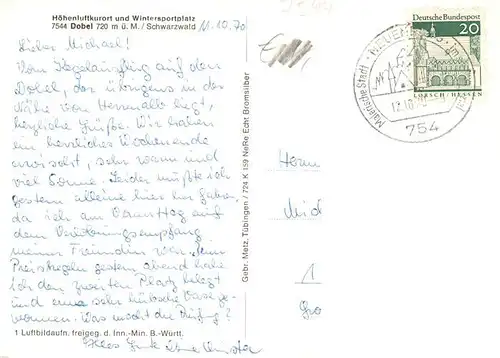 Höhenluftkurort und Wintersportplatz
7544 Dobel 720 m ü. M. / Schwarzwald
11.10.70
Lieber Michael!
Vom Kegelausflug auf den
Dobel, der übrigens in der
Nähe von Herrenalb liegt,
herzliche Grüße. Wir haben
ein herrliches Wochenende
erwischt, sehr warm und
viel Sonne. Leider mußte ich
gestern alleine hier her fahren,
da ich am Samstag auf
dem Verlobungsempfang
meiner Freundin war. Beim
Preiskegeln gestern abend habe
ich den zweiten Platz belegt
und eine sehr hübsche Vase ge-
wonnen. Was macht die Prüfung?
Alles Gute
1 Luftbildaufn. freigeg. d. Inn.-Min. B.-Württ.
Gebr. Metz, Tübingen / 724 K 159 NeRe Echt Bromsilber
Deutsche Bundespost
20
LORSCH/HESSEN
Malerische Stadt
12.10.70
754
Herrn
1